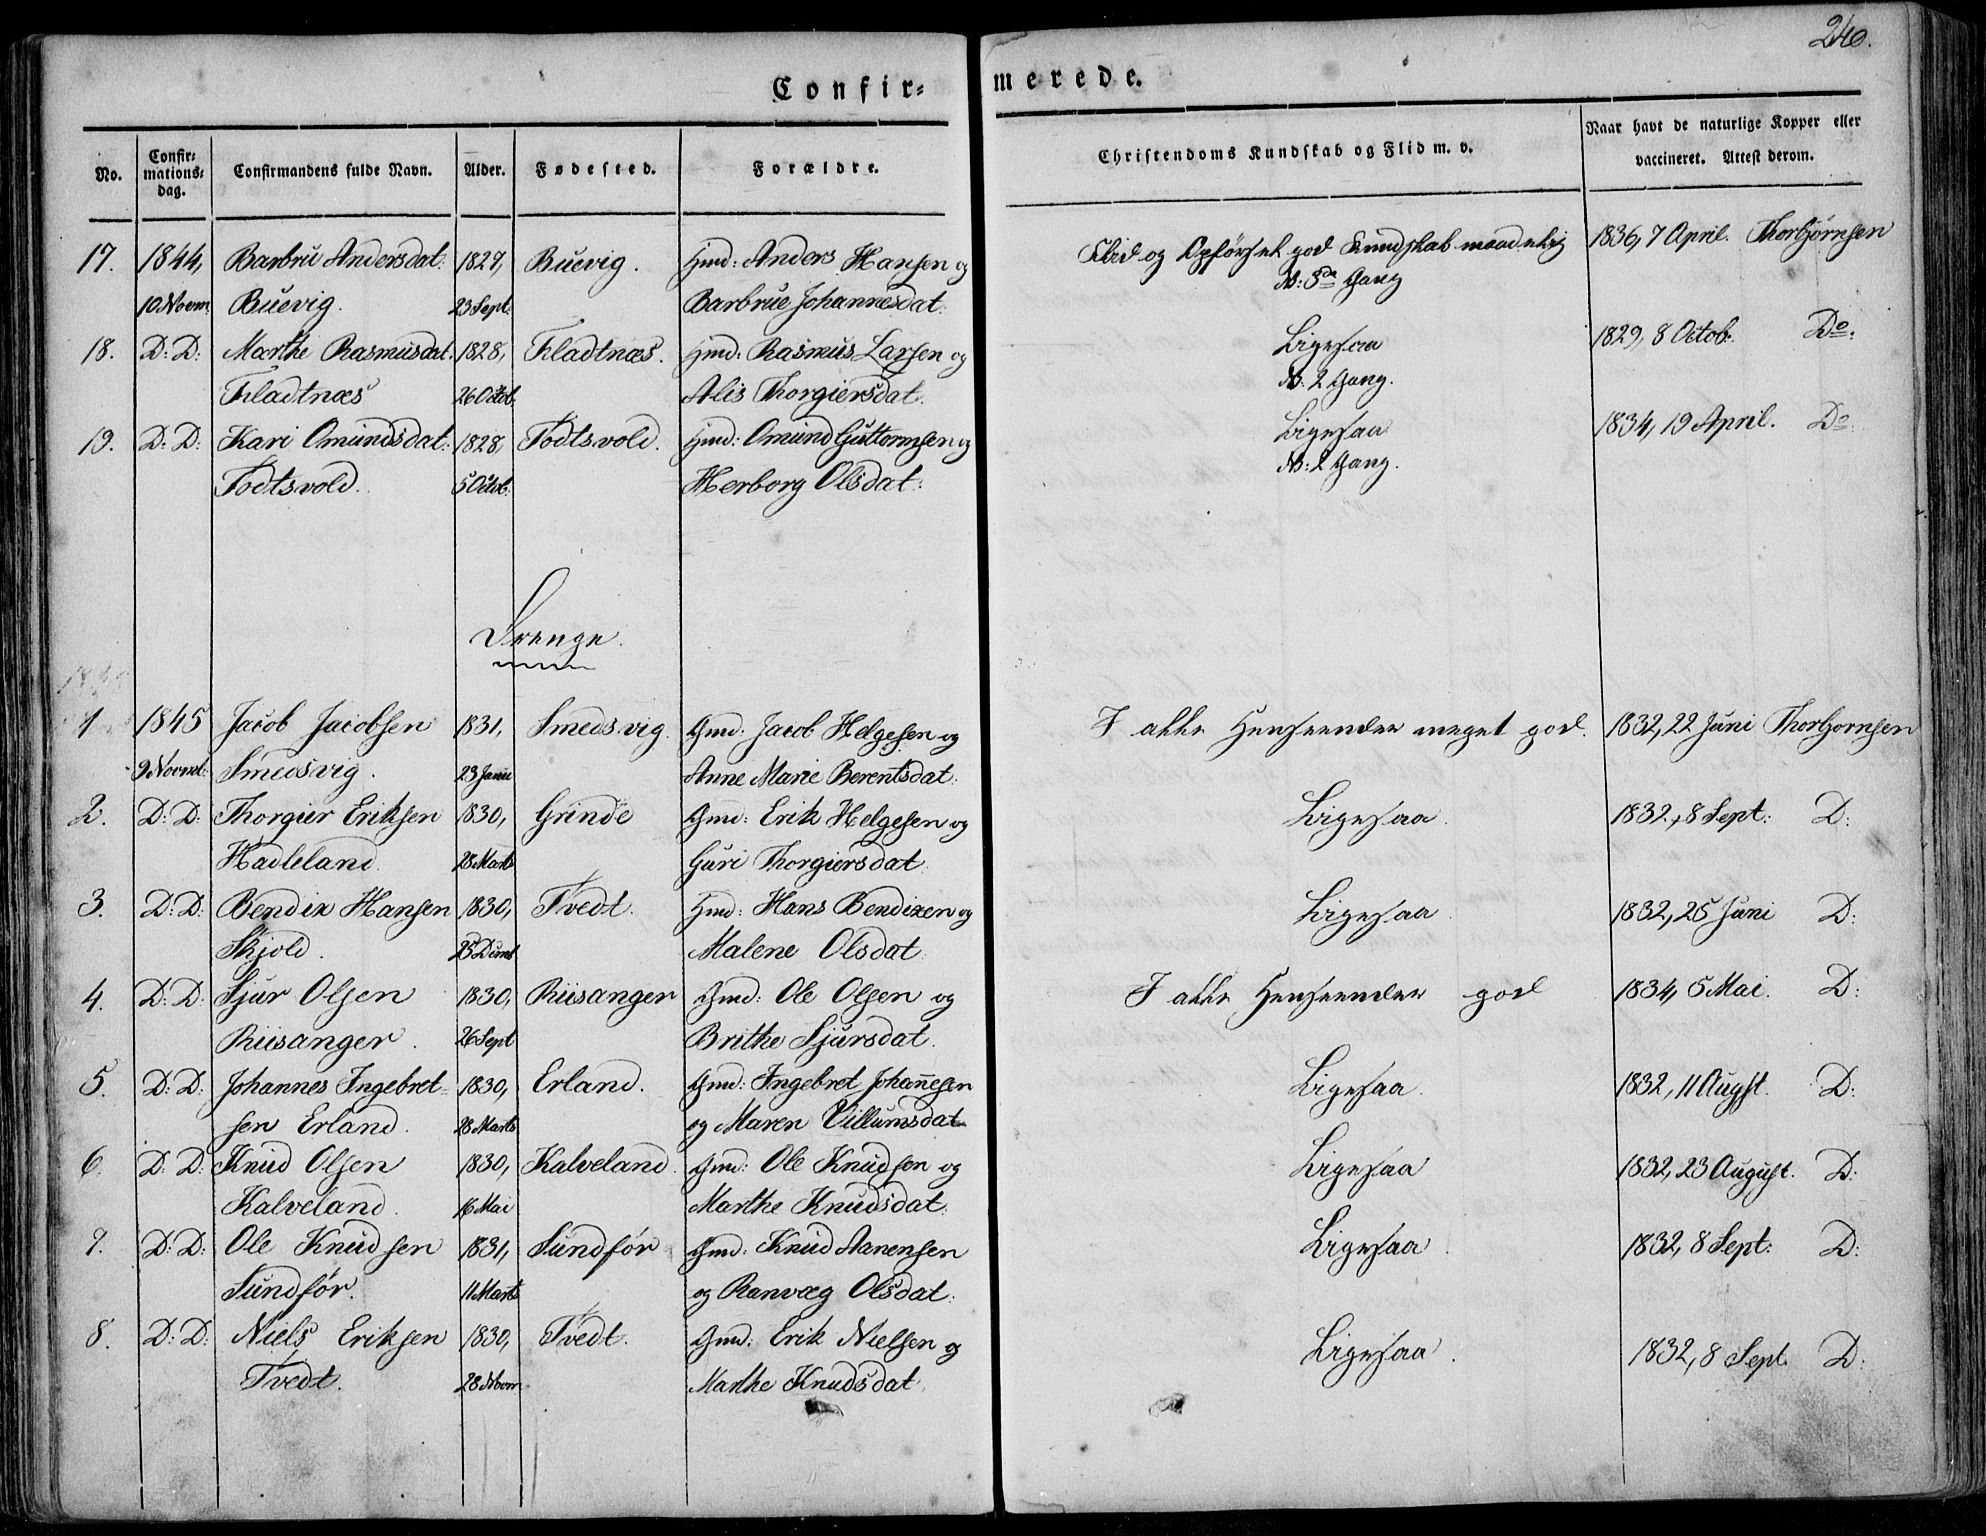 246.
Confir- merede.
No. Confirmations-dag. Confirmandens fulde Navn. Alder. Fødested. Forældre. Christendoms Kundskab og Flid m. v. Naar havt de naturlige Kopper eller vaccineret. Attest derom.
17. 1844, Barbru Andersdat: 1827, Buevig. Gmd: Anders Hansen og Flid og Opførsel god Kundskab maadelig 1836, 7 April. Thorbjørnsen
10 Novm: Buevig. 23 Sept: Barbrue Johannesdat: N: 3de Gang
18. D: D: Marthe Rasmusdat. 1828, Fladtnæs. Gmd: Rasmus Larsen og Ligesaa 1829, 8 Octob. Do:
Fladtnæs 26 Octob. Alis Thorgiersdat. N: 2 Gang.
19. D: D: Kari Omundsdat: 1828, Todtsvold. Gmd: Omund Guttormsen og Ligesaa 1834, 19 April. Do:
Todtsvold. 5 Octob: Herborg Olsdat: N: 2 Gang.
Drenge.
1 1845 Jacob Jacobsen 1831, Smedsvig Gmd: Jacob Helgesen og I alle Henseender meget god. 1832, 22 Juni Thorbjornsen
9 Novmb: Smedsvig. 23 Janu Anne Marie Berentsdat:
2. D: D: Thorgier Eriksen 1830, Grinde Gmd: Erik Helgesen og Ligesaa. 1832, 8 Sept: D:
Hadleland. 28 Marts Guri Thorgiersdat
3. D: D: Bendix Hansen 1830, Tvedt. Gmd: Hans Bendixen og Ligesaa. 1832, 25 Juni D:
Skjold. Malene Olsdat.
4. D: D: Sjur Olsen 1830, Riisanger Gmd: Ole Olsen og I alle Henseender god 1834, 5 Mai. D:
Riisanger. 26 Sept Brithe Sjursdat.
5. D: D: Johannes Ingebret- 1830, Erland. Gmd: Ingebret Johannesen Ligesaa. 1832, 11 Augst. D:
sen Erland. 28 Marts og Maren Villumsdat
6. D: D: Knud Olsen 1830, Kalveland. Gmd: Ole Knudsen og Ligesaa 1832, 23 August. D:
Kalveland. 16 Mai Marthe Knudsdat.
7. D: D: Ole Knudsen 1831, Sundfør Gmd: Knud Aanensen Ligesaa. 1832, 8 Sept: D:
Sundfør. 11 Marts og Ranvæg Olsdat.
8. D: D: Niels Eriksen 1830, Tvedt. Gmd: Erik Nielsen og Ligesaa. 1832, 8 Sept D:
Tvedt. 28 Novm Marthe Knudsdat.